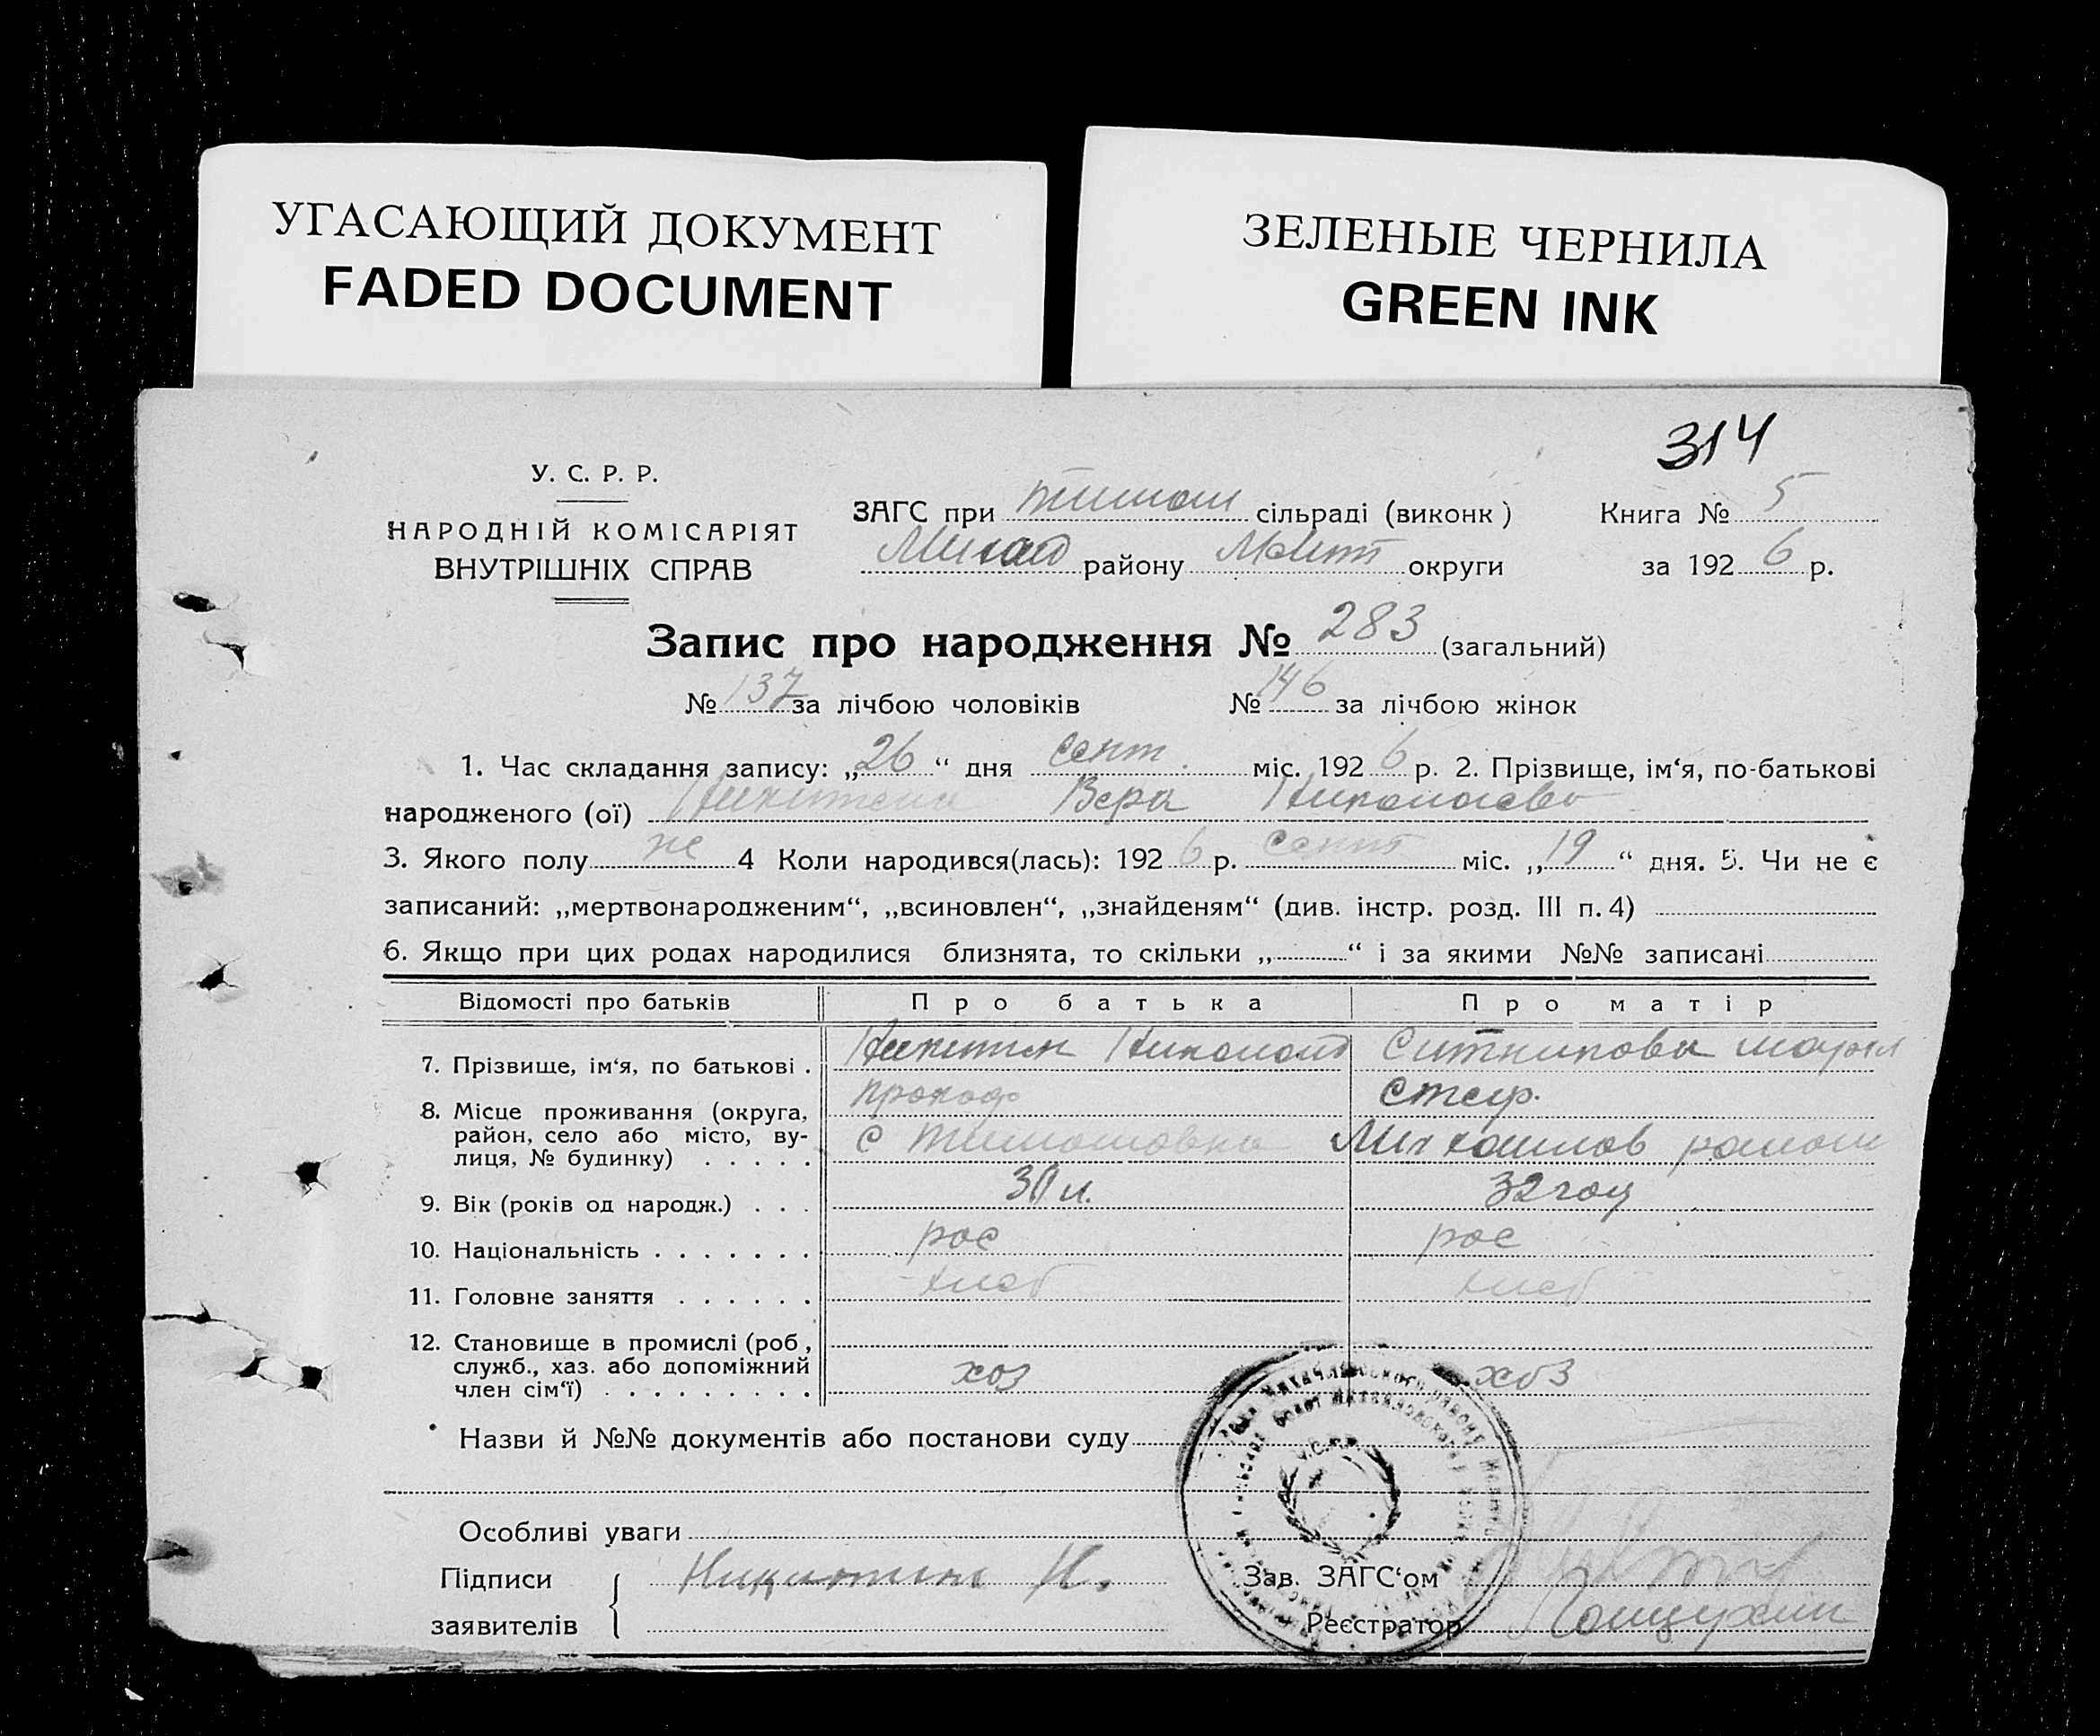 УГАСАЮЩИЙ ДОКУМЕНТ
FADED DOCUMENT
ЗЕЛЕНЫЕ ЧЕРНИЛА
GREEN INK
314
У. С. Р. Р.
НАРОДНІЙ КОМІСАРІЯТ
ВНУТРІШНІХ СПРАВ
ЗАГС при тимош сільраді (виконк)
Михай району Меліт округи
Книга № 5
за 1926 р.
Запис про народження № 283 (загальний)
№ 137 за лічбою чоловіків № 146 за лічбою жінок
1. Час складання запису: „26“ дня сент. міс. 1926 р. 2. Прізвище, ім‘я, по-батькові
народженого (ої) Никитена Вера Николаево
3. Якого полу же 4 Коли народився(лась): 1926 р. сент міс. „19“ дня. 5. Чи не є
записаний: „мертвонародженим“, „всиновлен“, „знайденям“ (див. інстр. розд. III п. 4)
6. Якщо при цих родах народилися близнята, то скільки „ “ і за якими №№ записані
Відомості про батьків Про батька Про матір
7. Прізвище, ім‘я, по батькові . Никитин Николай Ситникова Мария
прокоф Стеф.
8. Місце проживання (округа, район, село або місто, вулиця, № будинку) . . . . . с Тимошовка Михайлов району
9. Вік (років од народж.) . . . 30 л. 32 году
10. Національність . . . . . . . рос рос
11. Головне заняття . . . . . . хлеб хлеб
12. Становище в промислі (роб, служб., хаз. або допоміжний член сім‘ї) . . . . . . . . . хоз хоз
Назви й №№ документів або постанови суду
Особливі уваги
Підписи
заявителів
Никитин Н.
Зав. ЗАГС‘ом
Реєстратор